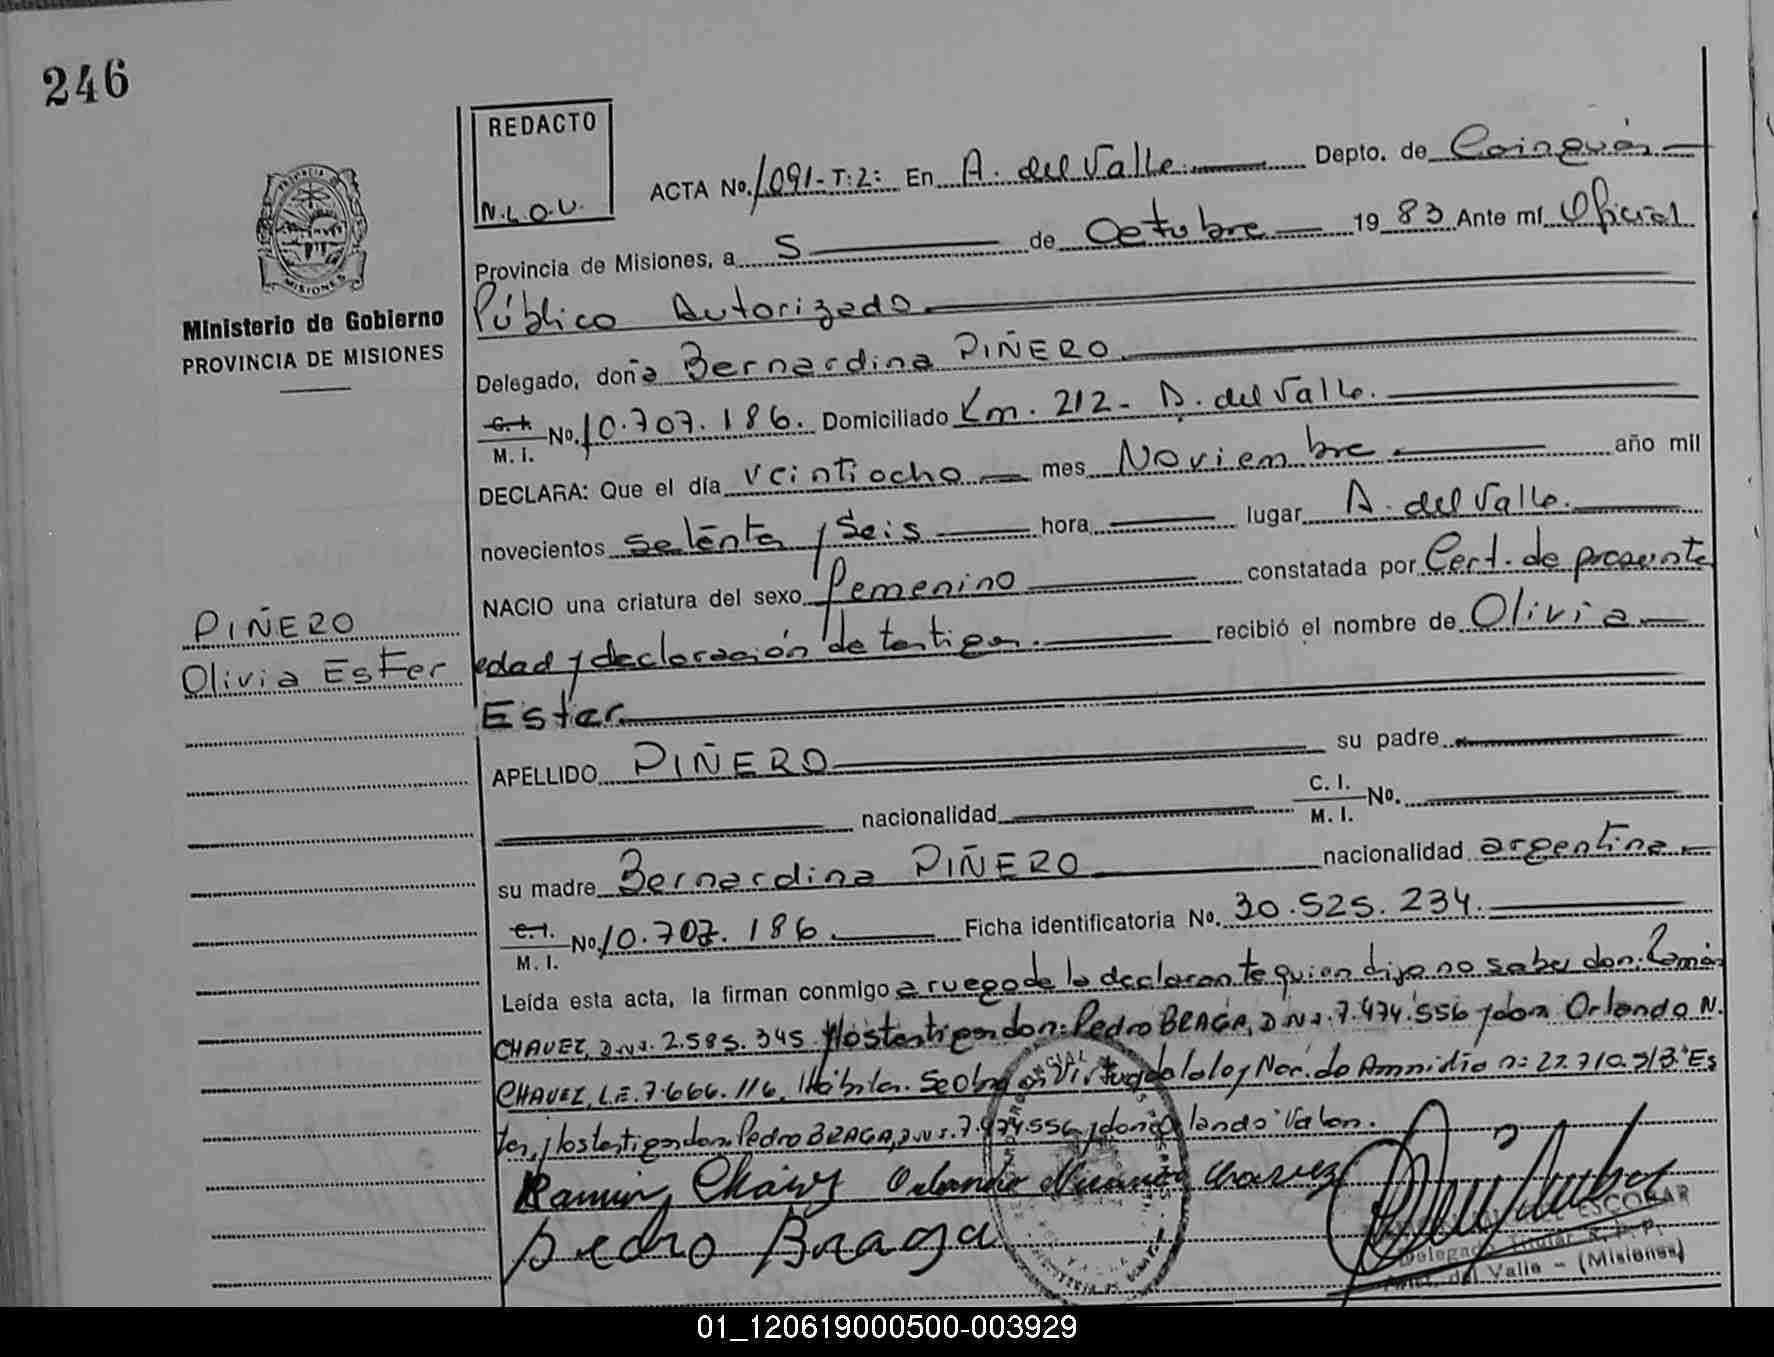 246
REDACTO
N.L.O.V.
ACTA No. 1091-T:2: En A. del Valle Depto. de Cainguás
Provincia de Misiones, a 5 de Octubre 1983 Ante mí Oficial
Público Autorizado
PROVINCIA DE MISIONES
MISIONES
Ministerio de Gobierno
PROVINCIA DE MISIONES
Delegado, doña Bernardina PIÑERO
C. I. M. I. No. 10.707.186. Domiciliado Km. 212 - A. del Valle.
DECLARA: Que el día veintiocho mes Noviembre año mil
novecientos setenta y Seis hora lugar A. del Valle.
NACIO una criatura del sexo femenino constatada por Cert. de presunta
edad y declaración de testigos. recibió el nombre de Olivia
Ester
PIÑERO
Olivia Ester
APELLIDO PIÑERO su padre
nacionalidad C. I. M. I. No.
su madre Bernardina PIÑERO nacionalidad argentina
C. I. M. I. No. 10.707.186. Ficha identificatoria No. 30.525.234.
Leída esta acta, la firman conmigo a ruego de la declarante quien dijo no saber don: Ramón
CHAVEZ, D.N.I. 2.585.345. y los testigos don: Pedro BRAGA, D.N.I. 7.474.556 y don Orlando N.
CHAVEZ, L.E. 7.666.116, Hábiles. Se Obra en Virtud de la ley Nac. de Amnistía n: 22.710.3/3. Es
ter, y los testigos don Pedro BRAGA, D.N.I. 7.474.556 y don Orlando Valen.
Ramon Chavez Orlando Chavez
Pedro Braga
ESCOBAR
Delegado Titular R. P. P.
del Valle - (Misiones)
01_120619000500-003929